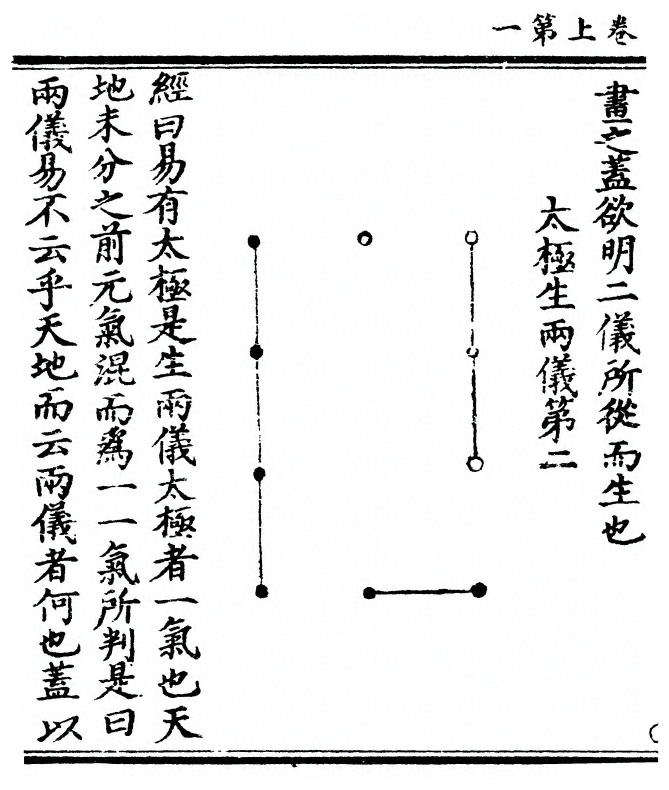 卷上第一
畫之蓋欲明二儀所從而生也
太極生兩儀第二
經曰易有太極是生兩儀太極者一氣也天
地未分之前元氣混而爲一一氣所判是曰
兩儀易不云乎天地而云兩儀者何也蓋以